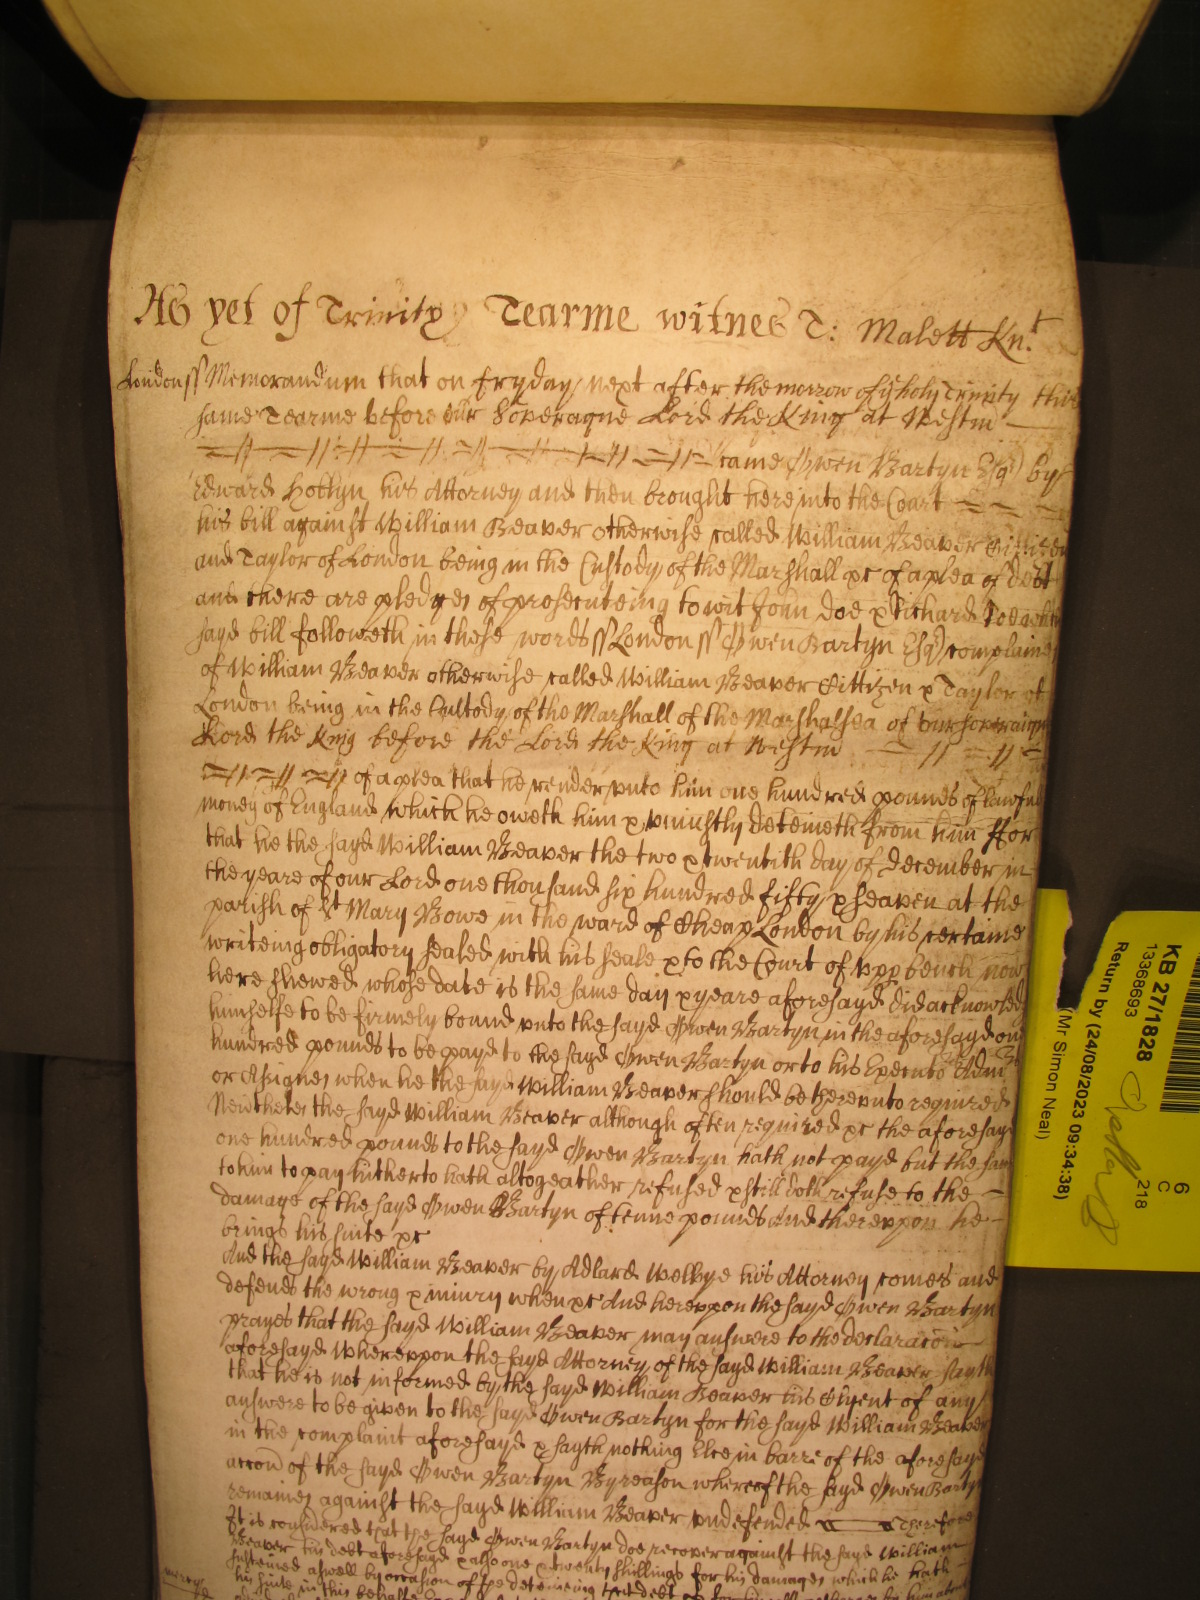 As yet of Trinity Tearme witnes T: Malett Kn.t
London ss Memorandum that on fryday next after the morrow of ye holy Trinity this
same Tearme before our Soveraigne Lord the King at Westm
came Owen Bartyn Esqr by
Edward Hoclyn his Attorney and then brought here into the Court
his bill against William Beaver otherwise called William Beaver Cittizen
and Taylor of London being in the Custody of the Marshall &c of a plea of debt
and there are pledges of prosecuteing to wit John Doe & Richard Roe which
sayd bill followeth in these words ss London ss Owen Bartyn Esqr complaines
of William Beaver otherwise called William Beaver Cittizen & Taylor of
London being in the Custody of the Marshall of the Marshalsea of our soveraigne
Lord the King before the Lord the King at Westm
of a plea that he render unto him one hundred pounds of lawfull
money of England which he oweth him & uniustly deteineth from him ffor
that he the sayd William Beaver the two & twentith day of December in
the yeare of our Lord one thousand six hundred fifty & seaven at the
parish of St Mary Bowe in the ward of Cheap London by his certaine
writeing obligatory sealed with his seale & to the Court of upp bench now
here shewed whose date is the same day & yeare aforesayd did acknowledge
himselfe to be firmely bound unto the sayd Owen Bartyn in the aforesayd one
hundred pounds to be payd to the sayd Owen Bartyn or to his Executors Admrs
or Assignes when he the sayd William Beaver should be thereunto required
Neverthelesse the sayd William Beaver although often required &c the aforesayd
one hundred pounds to the sayd Owen Bartyn hath not payd but the same
to him to pay hitherto hath altogeather refused & still doth refuse to the
damage of the sayd Owen Bartyn of tenne pounds And thereupon he
brings his suite &c
And the sayd William Beaver by Adlard Welbye his Attorney comes and
defends the wrong & iniury when &c And hereupon the sayd Owen Bartyn
prayes that the sayd William Beaver may answere to the declaracon
aforesayd Whereupon the sayd Attorney of the sayd William Beaver sayth
that he is not informed by the sayd William Beaver his Clyent of any
answere to be given to the sayd Owen Bartyn for the sayd William Beaver
in the complaint aforesayd & sayth nothing Else in barre of the aforesayd
accon of the sayd Owen Bartyn By reason whereof the sayd Owen Bartyn
remaines against the sayd William Beaver undefended Therefore
It is considered that the sayd Owen Bartyn doe recover against the sayd William
Beaver his debt aforesayd & also one & twenty shillings for his damages which he hath
susteined aswell by occasion of the deteineing that debt as for
his suite in this behalfe
mercy
KB 27/1828
13686693
Return by (24/08/2023 09:34:38)
(Mr Simon Neal)
6
C
218